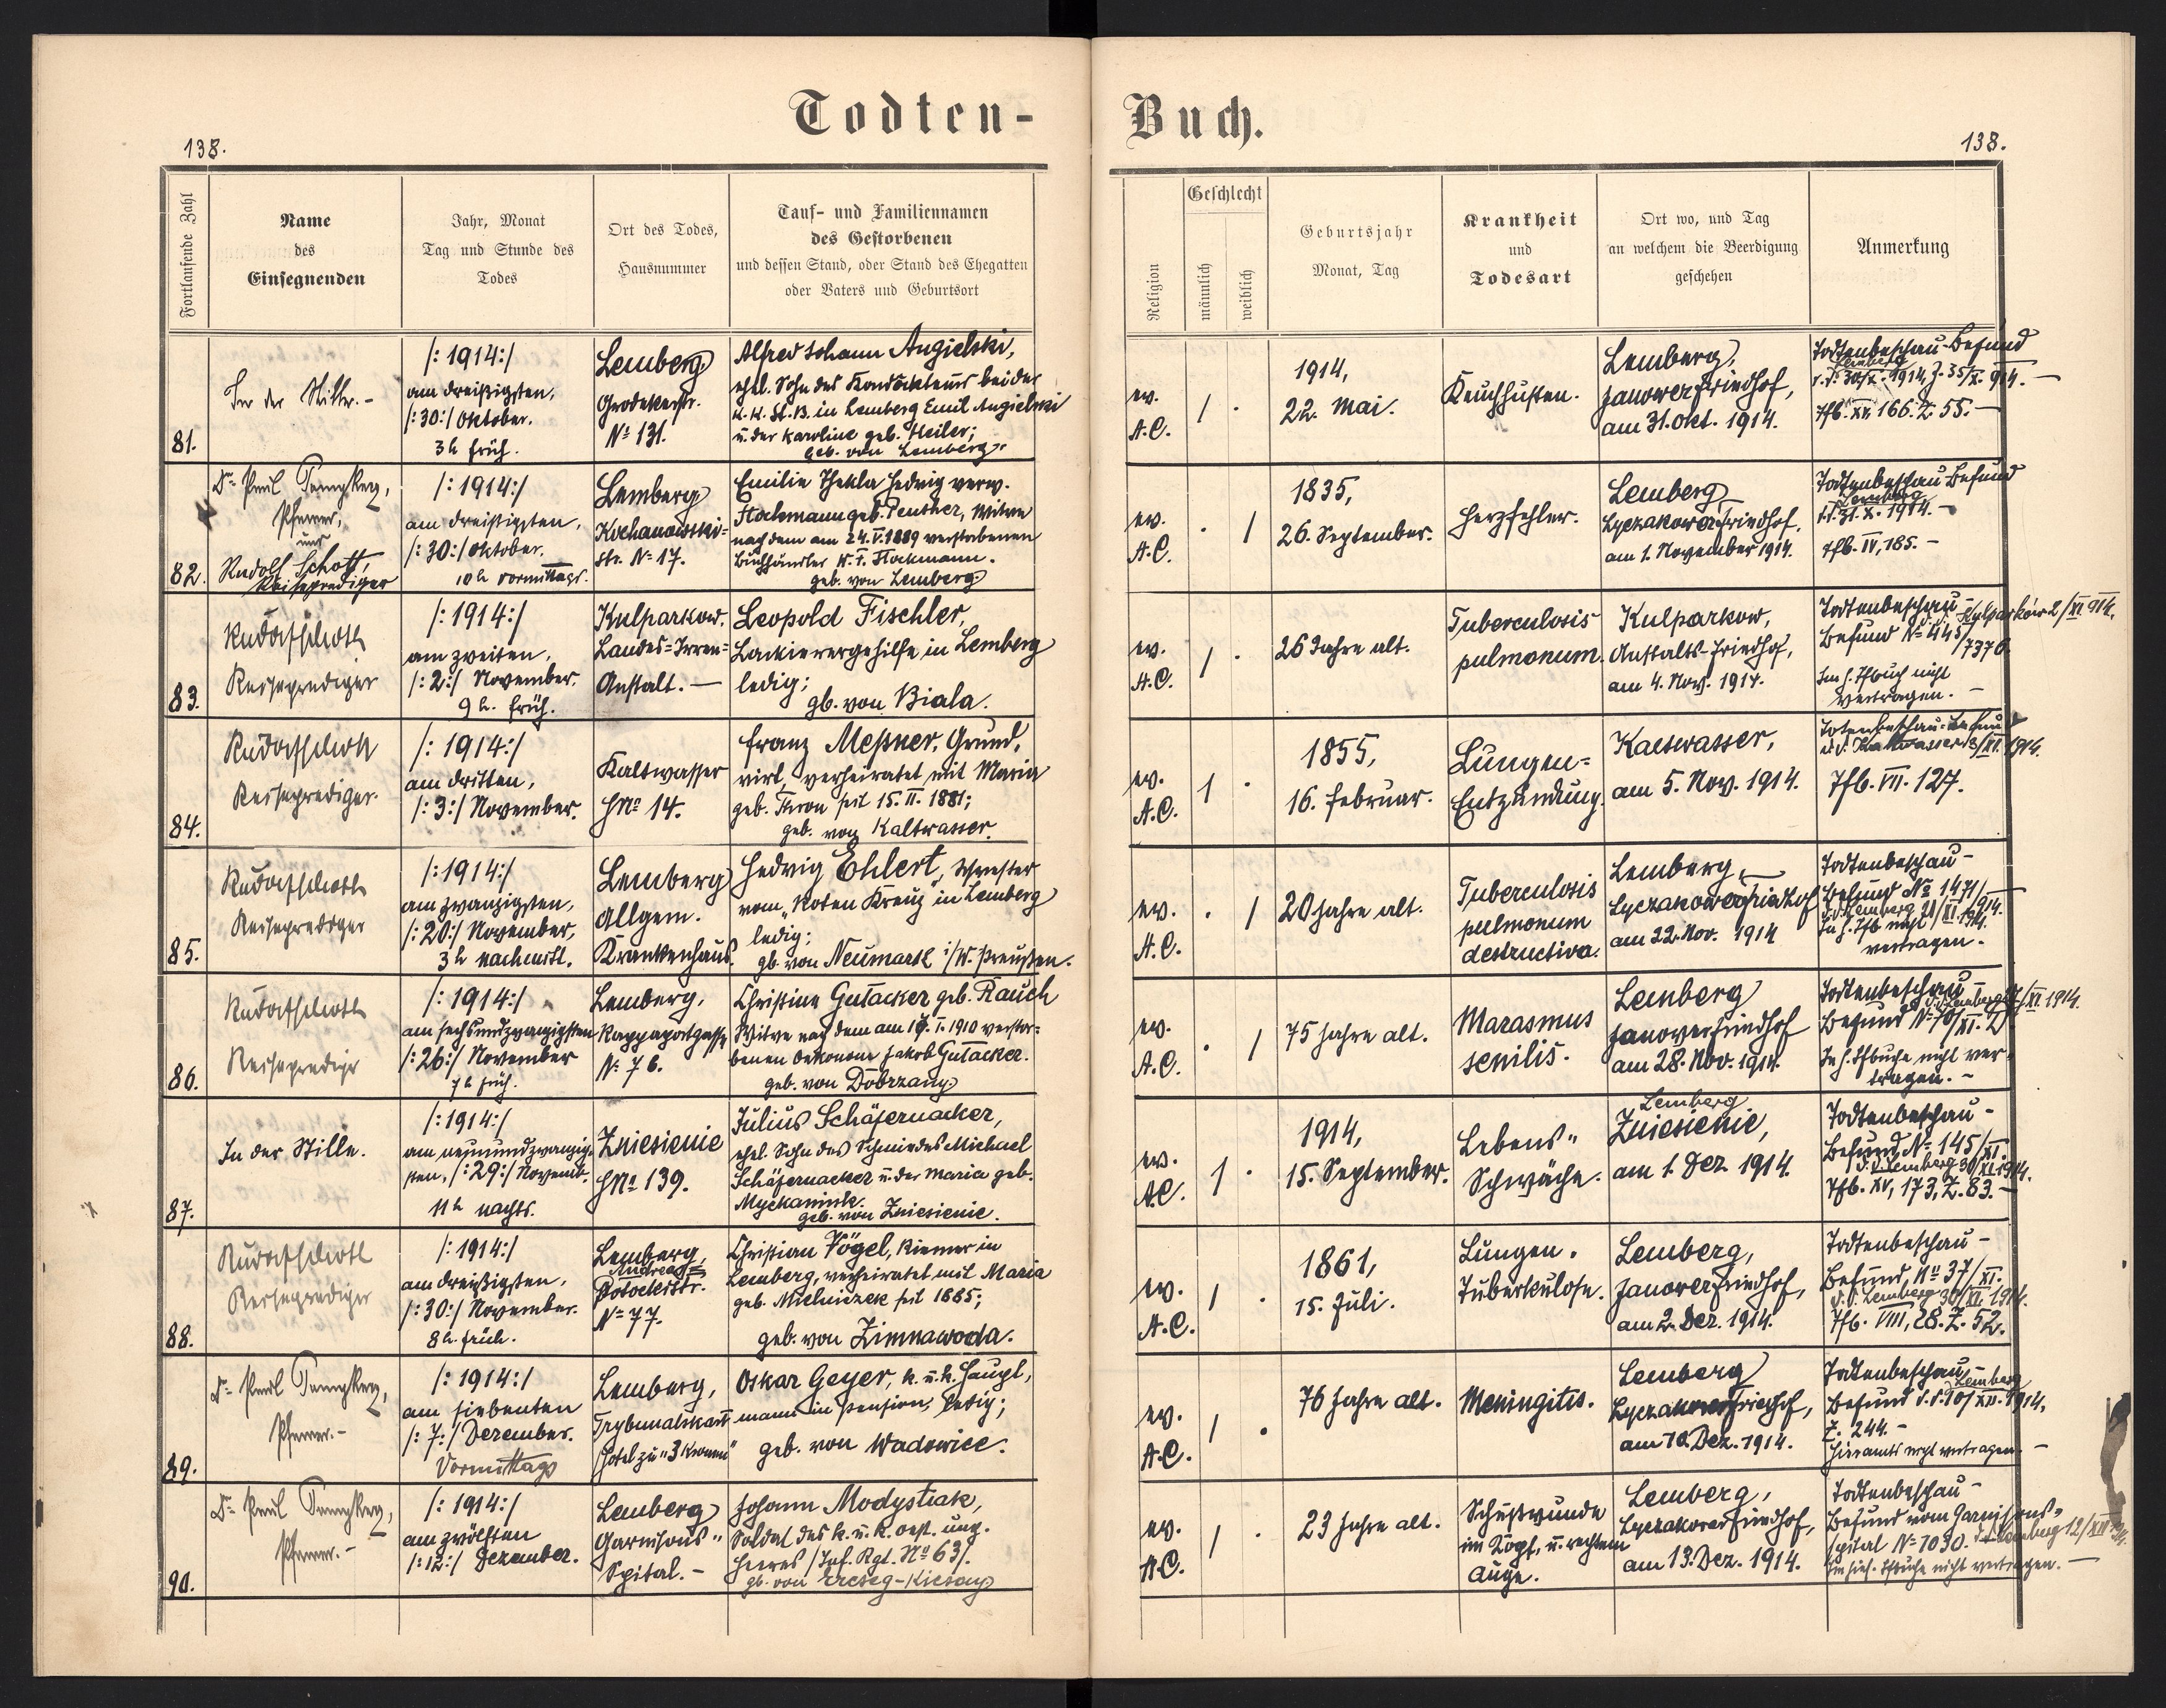 Todten-
Buch.
138.
138.
Fortlaufende Zahl
Name
des
Einsegnenden
Jahr, Monat
Tag und Stunde des
Todes
Ort des Todes,
Hausnummer
Tauf- und Familiennamen
des Gestorbenen
und dessen Stand, oder Stand des Ehegatten
oder Vaters und Geburtsort
Religion
Geschlecht
männlich
weiblich
Geburtsjahr
Monat, Tag
Krankheit
und
Todesart
Ort wo, und Tag
an welchem die Beerdigung
geschehen
Anmerkung
81.
In der Stille.-
/: 1914:/
am dreißigsten,
/: 30:/ Oktober.
3 h früh.
Lemberg
Grodekerstr.
No 131.
Alfred Johann Angielski,
ehel. Sohn des Kondukteurs bei der
k. k. St. B. in Lemberg Emil Angielski
u. der Karoline geb. Heiler;
geb. von Lemberg.
ev.
A.C.
1 .
1914,
22. Mai.
Keuchhusten.
Lemberg,
Janowerfriedhof,
am 31. Okt. 1914.
Todtenbeschau-Befund
Lemberg
d.d. 30/X. 1914, Z. 35/X. 914. —
Tfb. XV. 166. Z. 55. —
82.
Dr Paul
Pfarrer,
und
Rudolf Schott,
Reiseprediger
/: 1914:/
am dreißigsten,
/: 30:/ Oktober.
10 h vormittags.
Lemberg
Kochanowski-
str. No 17.
Emilie Thekla Hedwig verw.
Stockmann geb. Peusker, Witwe
nach dem am 24. V. 1889 verstorbenen
Buchhändler K. F. Stockmann.
geb. von Lemberg
ev.
A.C.
. 1
1835,
26. September.
Herzfehler.
Lemberg
Lyczakowerfriedhof.
am 1. November 1914.
Todtenbeschau Befund
Lemberg
d.d. 31. X. 1914. -
Tfb. IV, 185. -
83.
Rudolf Schott
Reiseprediger
/: 1914:/
am zweiten,
/: 2:/ November.
9 h. früh.
Kulparkow.
Landes-Irren-
Anstalt. —
Leopold Fischler,
Lackierergehilfe in Lemberg
ledig;
gb. von Biala.
ev.
A.C.
1 .
26 Jahre alt.
Tuberculosis
pulmonum.
Kulparkow,
Anstalts-friedhof,
am 4. Nov. 1914.
Todtenbeschau-
d.d. Kulparków 2/XI 914.
Befund No 445/7376.
Im h. Tfbuch nicht
vertragen. -
84.
Rudolf Schott
Reiseprediger.
/: 1914:/
am dritten,
/: 3:/ November.
Kaltwasser
HNo 14.
Franz Meßner, Grund,
wirt, verheiratet mit Maria
geb. Theron seit 15. II. 1881;
geb. von Kaltwasser.
ev.
A.C.
1 .
1855,
16. Februar.
Lungen-
Entzündung.
Kaltwasser,
am 5. Nov. 1914.
Totenbeschau-Befund
d.d. Kaltwasser 3/XI. 1914.
Tfb. VII. 127.
85.
Rudolf Schott
Reiseprediger
/: 1914:/
am zwanzigsten,
/: 20:/ November,
3 h nachmitt.
Lemberg
allgem.
Krankenhaus.
Hedwig Ehlert, Schwester
vom „Roten Kreuz" in Lemberg
ledig;
gb. von Neumark i/W. Preußen.
ev.
A.C.
. 1
20 Jahre alt.
Tuberculosis
pulmonum
destructiva.
Lemberg
Lyczakowerfriedhof
am 22. Nov. 1914
Todtenbeschau-
Befund No 1471/914.
d.d. Lemberg 21/XI. 1914.
In h. Tfb. nicht
vertragen. -
86.
Rudolf Schott
Reiseprediger
/: 1914:/
am sechsundzwanzigsten
/: 26:/ November
7 h früh.
Lemberg,
Rappaportgasse
No 76.
Christine Gutacker geb. Rauch
Witwe nach dem am 19. I. 1910 verstor-
benen Oekonom Jakob Gutacker.
geb. von Dobrzany
ev.
A.C.
. 1
75 Jahre alt.
Marasmus
senilis.
Lemberg
Janowerfriedhof
am 28. Nov. 1914.
Todtenbeschau-
d.d. Lemberg 27/XI 1914.
Befund No 70/XI.
In h. Tfbuche nicht ver-
tragen. -
87.
In der Stille.
/: 1914:/
am neunundzwanzig-
sten, /: 29:/ Novemb.
11 h nachts.
Zniesienie
HNo 139.
Julius Schäfernacker,
ehel. Sohn des Schmiedes Michael
Schäfernacker u. der Maria geb.
Myckaniuk.
geb. von Zniesienie.
ev.
A.C.
1 .
1914,
15. September.
Lebens-
Schwäche.
Lemberg
Zniesienie,
am 1. Dez. 1914.
Todtenbeschau-
Befund No 145/XI.
d.d. Lemberg 30/XI 1914.
Tfb. XV, 173, Z. 83. -
88.
Rudolf Schott
Reiseprediger
/: 1914:/
am dreißigsten,
/: 30:/ November.
8 h. früh.
Lemberg,
Andreas-
Potockistr.
No 77.
Christian Vögel, Riemer in
Lemberg, verheiratet mit Maria
geb. Mielniczek seit 1885;
geb. von Zimnawoda.
ev.
A.C.
1 .
1861,
15. Juli.
Lungen-
Tuberkulose.
Lemberg,
Janowerfriedhof,
am 2. Dez. 1914.
Todtenbeschau-
Befund, No 37/XI.
d.d. Lemberg 30/XI. 1914.
Tfb. VIII, 28. Z. 52.
89.
Dr Paul
Pfarrer.-
/: 1914:/
am siebenten
/: 7:/ Dezember.
Vormittags
Lemberg,
Trybunalska
Hotel zu "3 Kronen"
Oskar Geyer, k. u. k. Haupt,
mann in Pension, ledig;
geb. von Wadowice.
ev.
A.C.
1 .
76 Jahre alt.
Meningitis.
Lemberg
Lyczakowerfriedhof,
am 10. Dez. 1914.
Todtenbeschau-
Lemberg
Befund d.d. 10/XII. 1914,
Z. 244. -
Hieramts nicht vertragen. —
90.
Dr Paul
Pfarrer.-
/: 1914:/
am zwölften
/: 12:/ Dezember.
Lemberg
Garnisons-
Spital.-
Johann Modystiak,
Soldat des k. u. k. oest. ung.
Heeres /Inf. Rgt. No 63/.
gb. von
ev.
A.C.
1 .
23 Jahre alt.
Schußwunde
im Kopf, u. rechtem
Auge.
Lemberg,
Lyczakowerfriedhof,
am 13. Dez. 1914.
Todtenbeschau-
Befund vom Garnisons-
spital No 7030. d.d. Lemberg 12/XII 914.
Im hies. Tfbuche nicht vertragen. —